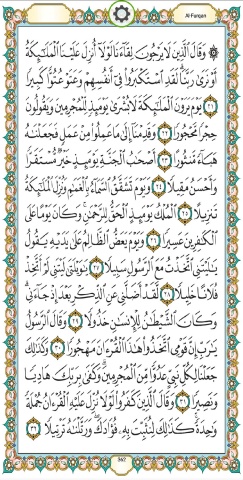 Al-Furqan
۞ وَقَالَ ٱلَّذِينَ لَا يَرْجُونَ لِقَآءَنَا لَوْلَآ أُنزِلَ عَلَيْنَا ٱلْمَلَـٰٓئِكَةُ
أَوْ نَرَىٰ رَبَّنَا ۗ لَقَدِ ٱسْتَكْبَرُوا۟ فِىٓ أَنفُسِهِمْ وَعَتَوْ عُتُوًّا كَبِيرًا
٢١ يَوْمَ يَرَوْنَ ٱلْمَلَـٰٓئِكَةَ لَا بُشْرَىٰ يَوْمَئِذٍ لِّلْمُجْرِمِينَ وَيَقُولُونَ
حِجْرًا مَّحْجُورًا ٢٢ وَقَدِمْنَآ إِلَىٰ مَا عَمِلُوا۟ مِنْ عَمَلٍ فَجَعَلْنَـٰهُ
هَبَآءً مَّنثُورًا ٢٣ أَصْحَـٰبُ ٱلْجَنَّةِ يَوْمَئِذٍ خَيْرٌ مُّسْتَقَرًّا
وَأَحْسَنُ مَقِيلًا ٢٤ وَيَوْمَ تَشَقَّقُ ٱلسَّمَآءُ بِٱلْغَمَـٰمِ وَنُزِّلَ ٱلْمَلَـٰٓئِكَةُ
تَنزِيلًا ٢٥ ٱلْمُلْكُ يَوْمَئِذٍ ٱلْحَقُّ لِلرَّحْمَـٰنِ ۚ وَكَانَ يَوْمًا عَلَى
ٱلْكَـٰفِرِينَ عَسِيرًا ٢٦ وَيَوْمَ يَعَضُّ ٱلظَّالِمُ عَلَىٰ يَدَيْهِ يَقُولُ
يَـٰلَيْتَنِى ٱتَّخَذْتُ مَعَ ٱلرَّسُولِ سَبِيلًا ٢٧ يَـٰوَيْلَتَىٰ لَيْتَنِى لَمْ أَتَّخِذْ
فُلَانًا خَلِيلًا ٢٨ لَّقَدْ أَضَلَّنِى عَنِ ٱلذِّكْرِ بَعْدَ إِذْ جَآءَنِى ۗ
وَكَانَ ٱلشَّيْطَـٰنُ لِلْإِنسَـٰنِ خَذُولًا ٢٩ وَقَالَ ٱلرَّسُولُ
يَـٰرَبِّ إِنَّ قَوْمِى ٱتَّخَذُوا۟ هَـٰذَا ٱلْقُرْءَانَ مَهْجُورًا ٣٠ وَكَذَٰلِكَ
جَعَلْنَا لِكُلِّ نَبِىٍّ عَدُوًّا مِّنَ ٱلْمُجْرِمِينَ ۗ وَكَفَىٰ بِرَبِّكَ هَادِيًا
وَنَصِيرًا ٣١ وَقَالَ ٱلَّذِينَ كَفَرُوا۟ لَوْلَا نُزِّلَ عَلَيْهِ ٱلْقُرْءَانُ جُمْلَةً
وَٰحِدَةً ۚ كَذَٰلِكَ لِنُثَبِّتَ بِهِۦ فُؤَادَكَ ۖ وَرَتَّلْنَـٰهُ تَرْتِيلًا ٣٢
362